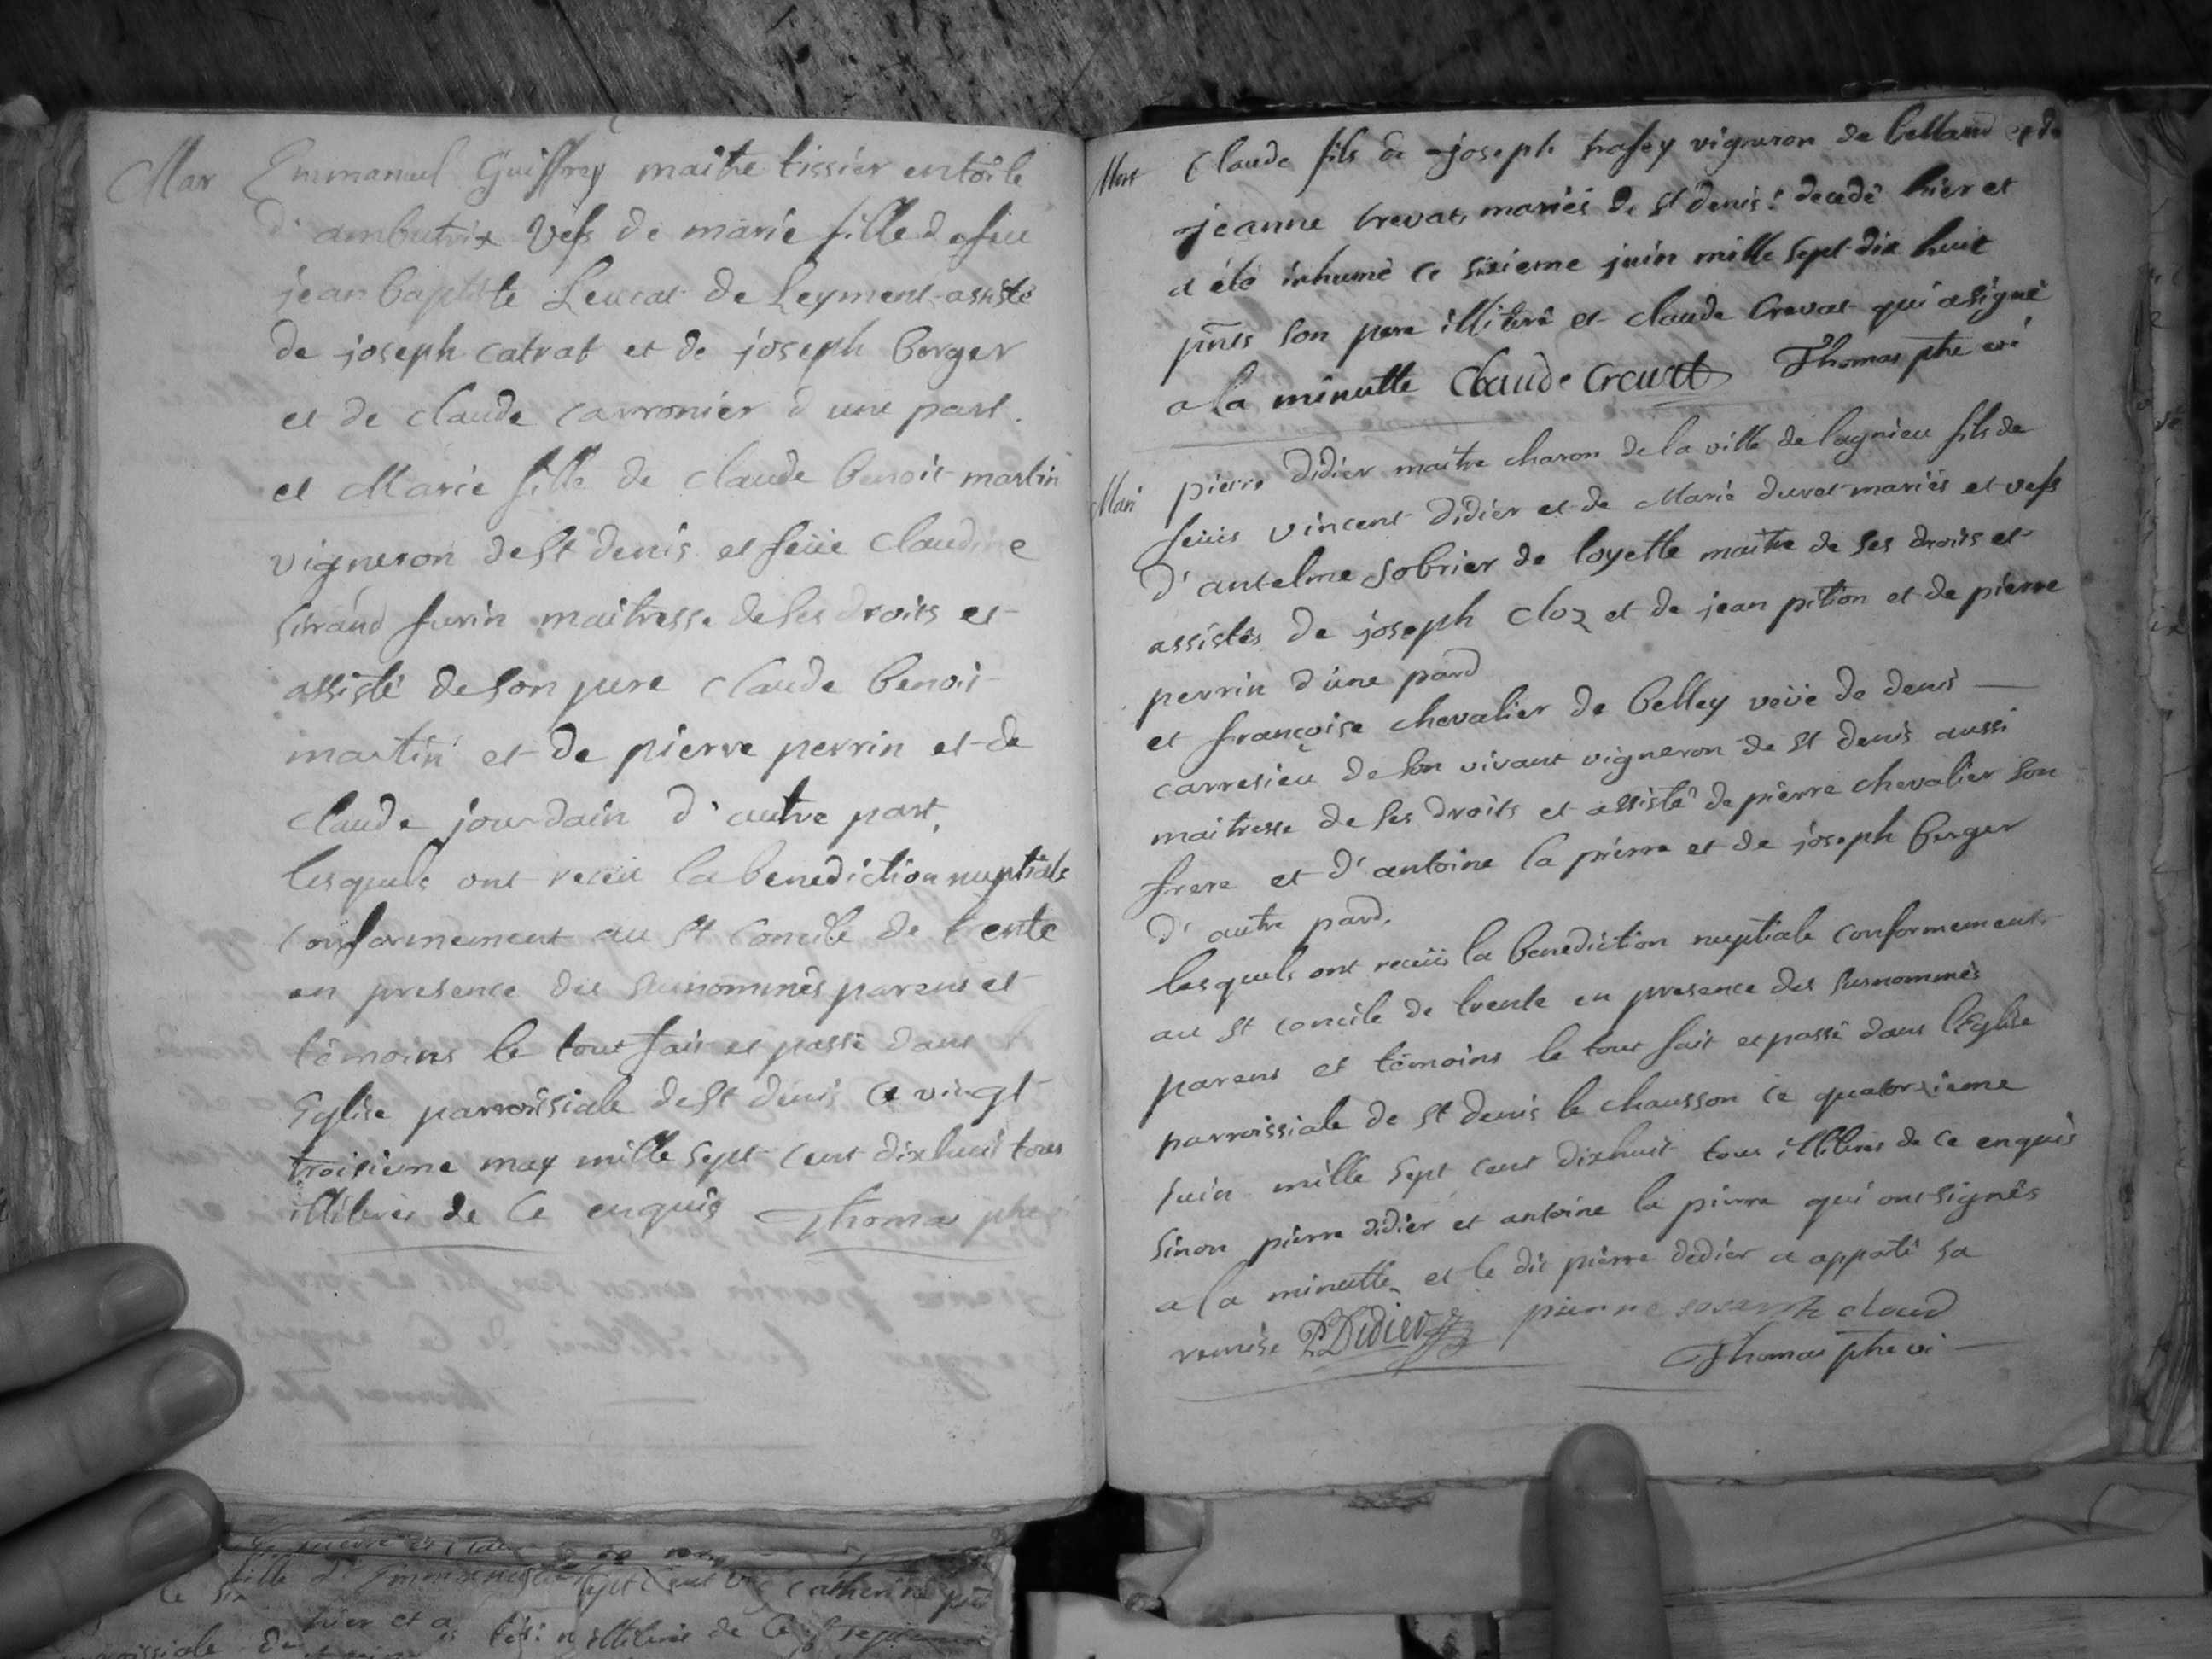 Mar Emmanuel Guiffrey maitre tissier en toile
d'ambutrix vefs de marie fille de feu
jean baptiste Leucat de Leyment assisté
de joseph catrat et de joseph berger
et de claude carronier d'une part.
et Marie fille de claude benoit martin
vigneron de st denis et feüe claudine
sirand furin maitresse de ses droits et
assisté de son pere claude benoit
martin et de pierre perrin et de
claude jourdain d'autre part,
lesquels ont receu la benediction nuptiale
conformement au st concile de trente
en presence des susnommés parens et
témoins le tout fait et passé dans l
Eglise parroissiale de st denis ce vingt
troisieme may mille sept cent dixhuit tous
illiterés de ce enquis Thomas phe
Mort Claude fils de joseph vigneron de et de
jeanne crevat mariés de st denis: decedé hier et
a été inhumé ce sixieme juin mille sept dix huit
pnts son pere illiteré et claude Crevat qui a signé
a la minutte Claude Crevat Thomas phe
Mari pierre didier maitre charon de la ville de lagnieu fils de
feüs vincent didier et de Marie duret mariés et vefs
d'antelme sobrier de loyette maitre de ses droits et
assistés de joseph cloz et de jean pition et de pierre
perrin d'une pard
et françoise chevalier de belley veüe de denis
carresieu de son vivant vigneron de st denis aussi
maitresse de ses droits et assisté de pierre chevalier son
frere et d'antoine la pierre et de joseph berger
d'autre pard.
lesquels ont receüs la benediction nuptiale conformement
au st concile de trente en presence des susnommés
parens et témoins le tout fait et passé dans l'Eglise
parroissiale de st denis le chausson ce quatorzieme
juin mille sept cent dixhuit tous illiterés de ce enquis
sinon pierre didier et antoine la pierre qui ont signés
a la minutte et le dit pierre didier a
remise PDidier
Thomas phe
fille d
hier et a
illiterés de ce